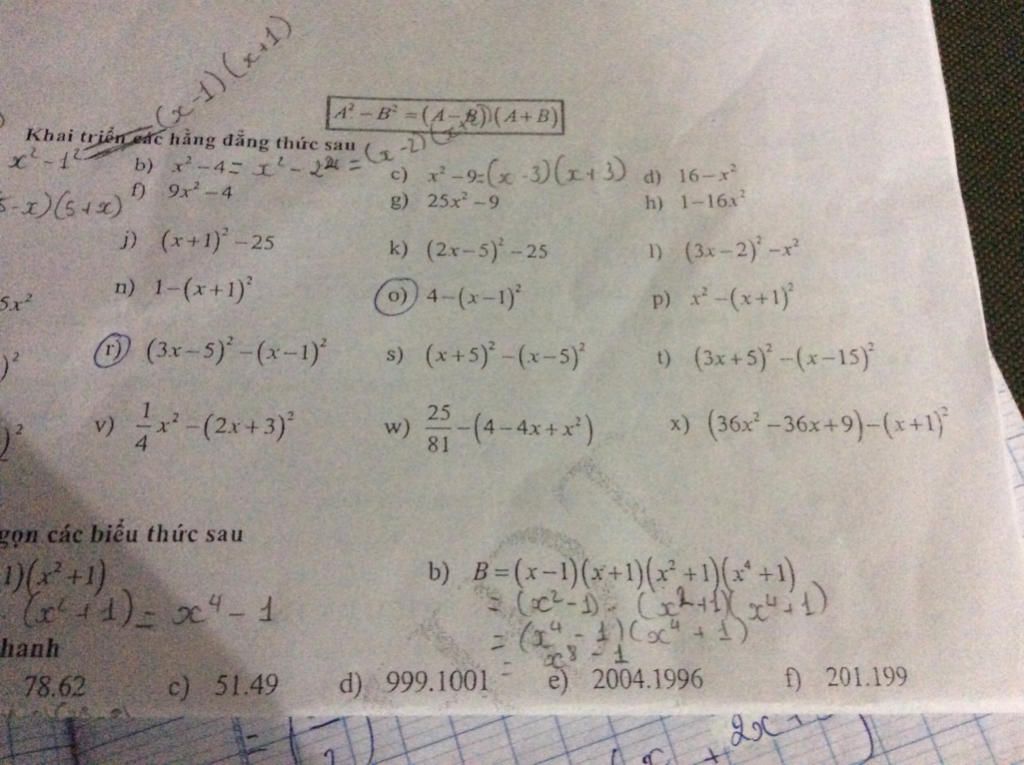 (x-1)(x+1)
A² − B² = (A − B)(A + B)
Khai triển các hằng đẳng thức sau
x² - 1²
b) x² − 4 = x² - 2² = (x-2)(x+2)
c) x² − 9 = (x-3)(x+3)
d) 16 − x²
5-x)(5+x)
f) 9x² − 4
g) 25x² − 9
h) 1 − 16x²
j) (x+1)² − 25
k) (2x−5)² − 25
l) (3x−2)² − x²
5x²
n) 1 − (x+1)²
o) 4 − (x−1)²
p) x² − (x+1)²
)²
r) (3x−5)² − (x−1)²
s) (x+5)² − (x−5)²
t) (3x+5)² − (x−15)²
)²
v) 1/4 x² − (2x+3)²
w) 25/81 − (4 − 4x + x²)
x) (36x² − 36x + 9) − (x+1)²
gọn các biểu thức sau
1)(x²+1)
b) B = (x−1)(x+1)(x²+1)(x⁴+1)
(x²+1) = x⁴ - 1
= (x²-1) · (x²+1)(x⁴+1)
= (x⁴-1)(x⁴+1)
= x⁸ - 1
hanh
78.62
c) 51.49
d) 999.1001
e) 2004.1996
f) 201.199